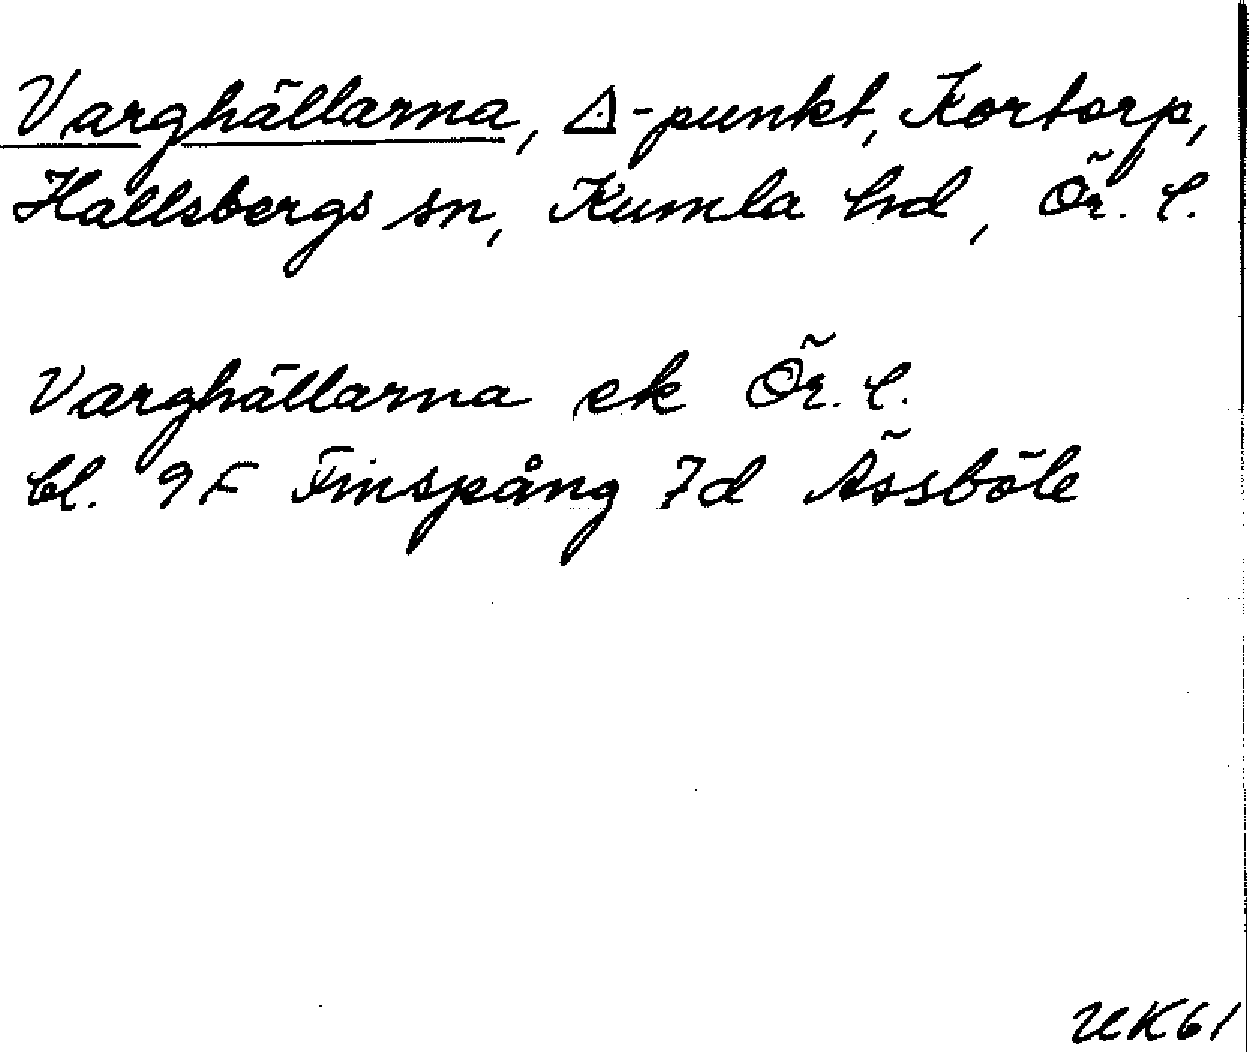 Varghällarna, △-punkt, Kortorp,
Hallsbergs sn, Kumla hd, Ör. l.
Varghällarna ek Ör. l.
bl. 9F Finspång 7d Ässböle
UK61